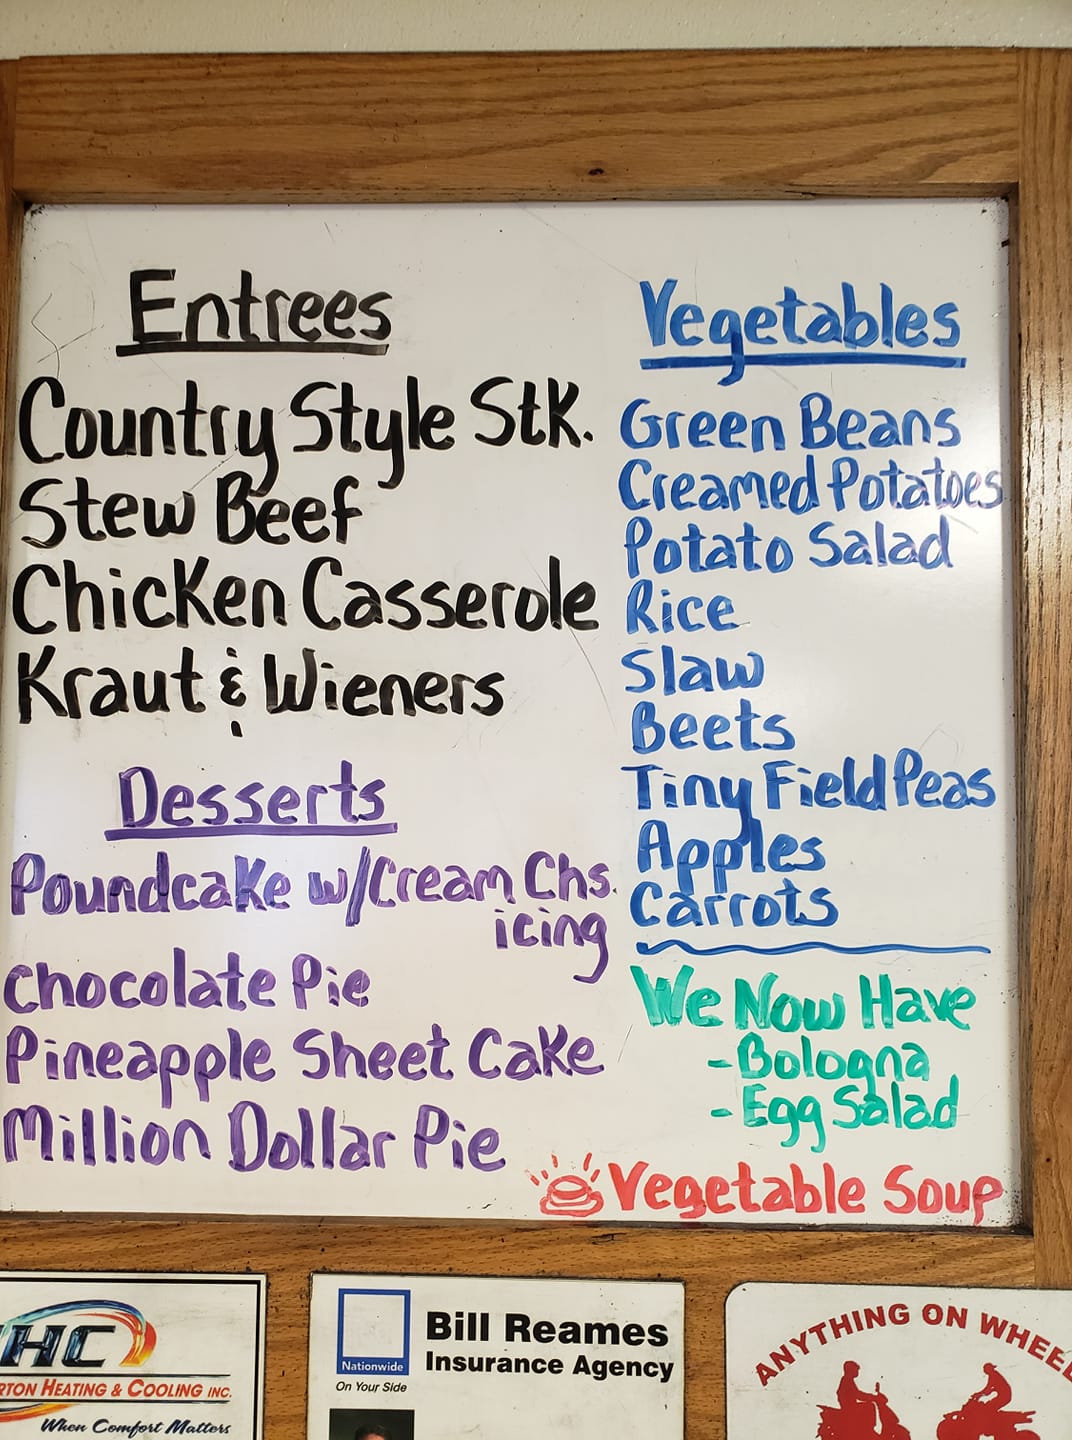 Entrees
Country Style Stk.
Stew Beef
Chicken Casserole
Kraut & Wieners
Desserts
Poundcake w/Cream Chs.
icing
Chocolate Pie
Pineapple Sheet Cake
Million Dollar Pie
Vegetables
Green Beans
Creamed Potatoes
Potato Salad
Rice
Slaw
Beets
Tiny Field Peas
Apples
Carrots
We Now Have
- Bologna
- Egg Salad
Vegetable Soup
HC
RTON HEATING & COOLING INC.
When Comfort Matters
Nationwide
On Your Side
Bill Reames
Insurance Agency
ANYTHING ON WHEE